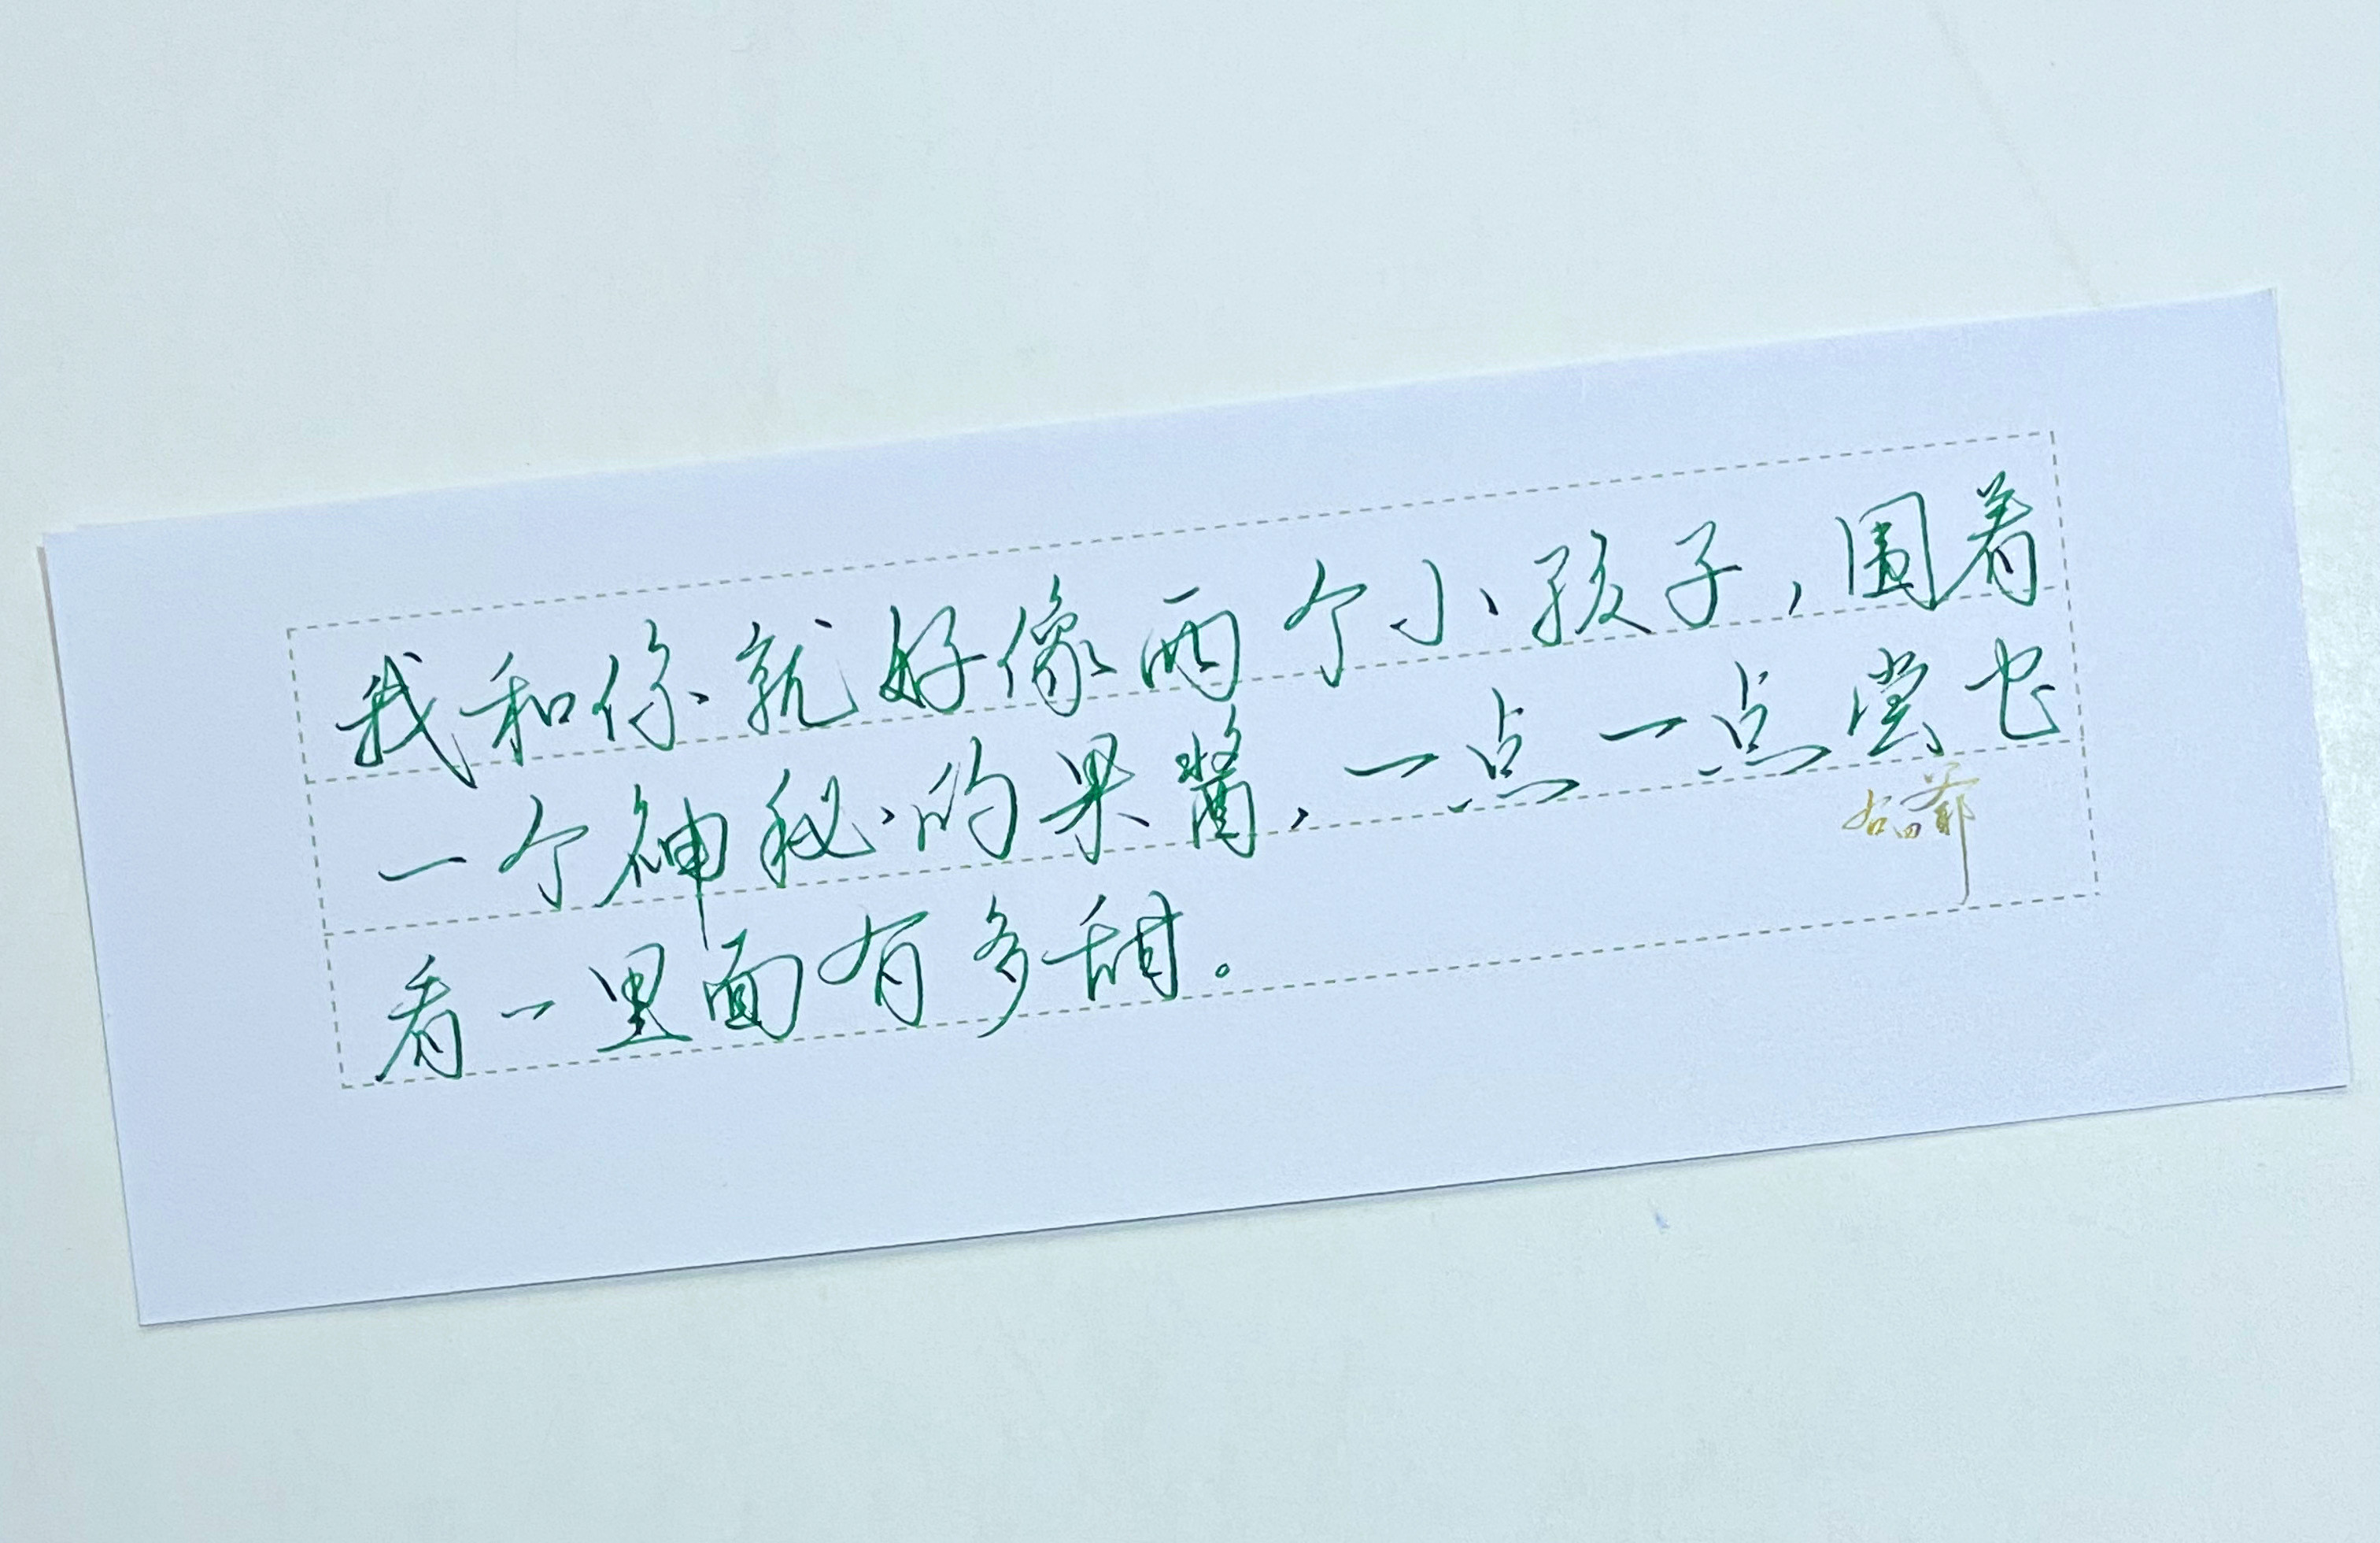 我和你就好像两个小孩子，围着
一个神秘的果酱，一点一点尝它
看一里面有多甜。
右四爷